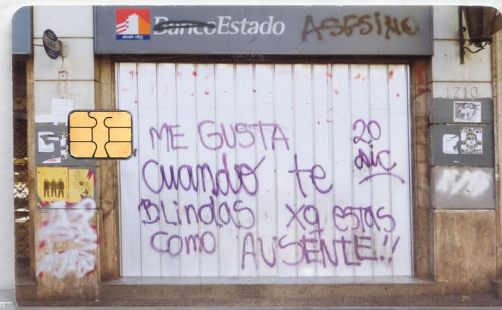 BancoEstado ASESINO
desde 1855
1710
ME GUSTA 20
cuando te dic
BLINDAS xq estas
como AUSENTE!!